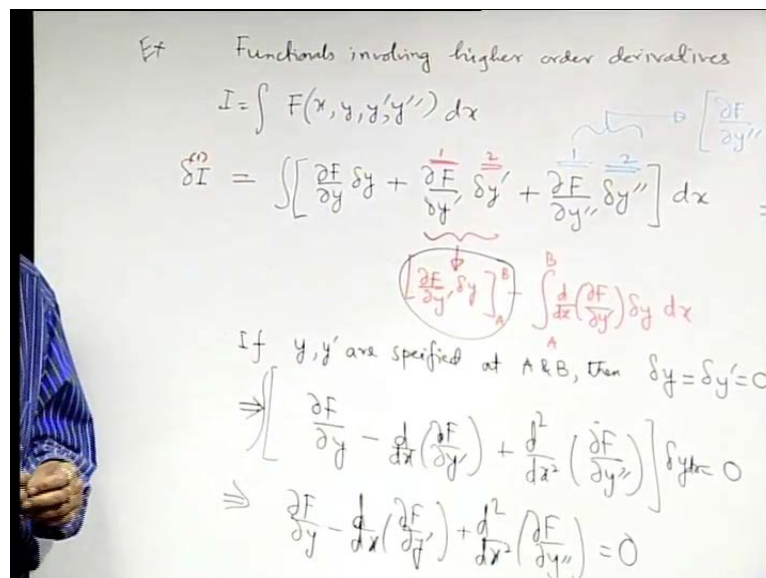 Ex Functionals involving higher order derivatives
I = ∫ F(x, y, y', y'') dx
δ⁽¹⁾I = ∫[ ∂F/∂y δy + ∂F/∂y' δy' + ∂F/∂y'' δy'' ] dx =
1 2 1 2 → [ ∂F/∂y''
[ ∂F/∂y' δy ]_A^B - ∫_A^B d/dx (∂F/∂y') δy dx
If y, y' are spefified at A & B, then δy = δy' = 0
⇒ ∫[ ∂F/∂y - d/dx (∂F/∂y') + d²/dx² (∂F/∂y'') ] δy dx = 0
⇒ ∂F/∂y - d/dx (∂F/∂y') + d²/dx² (∂F/∂y'') = 0